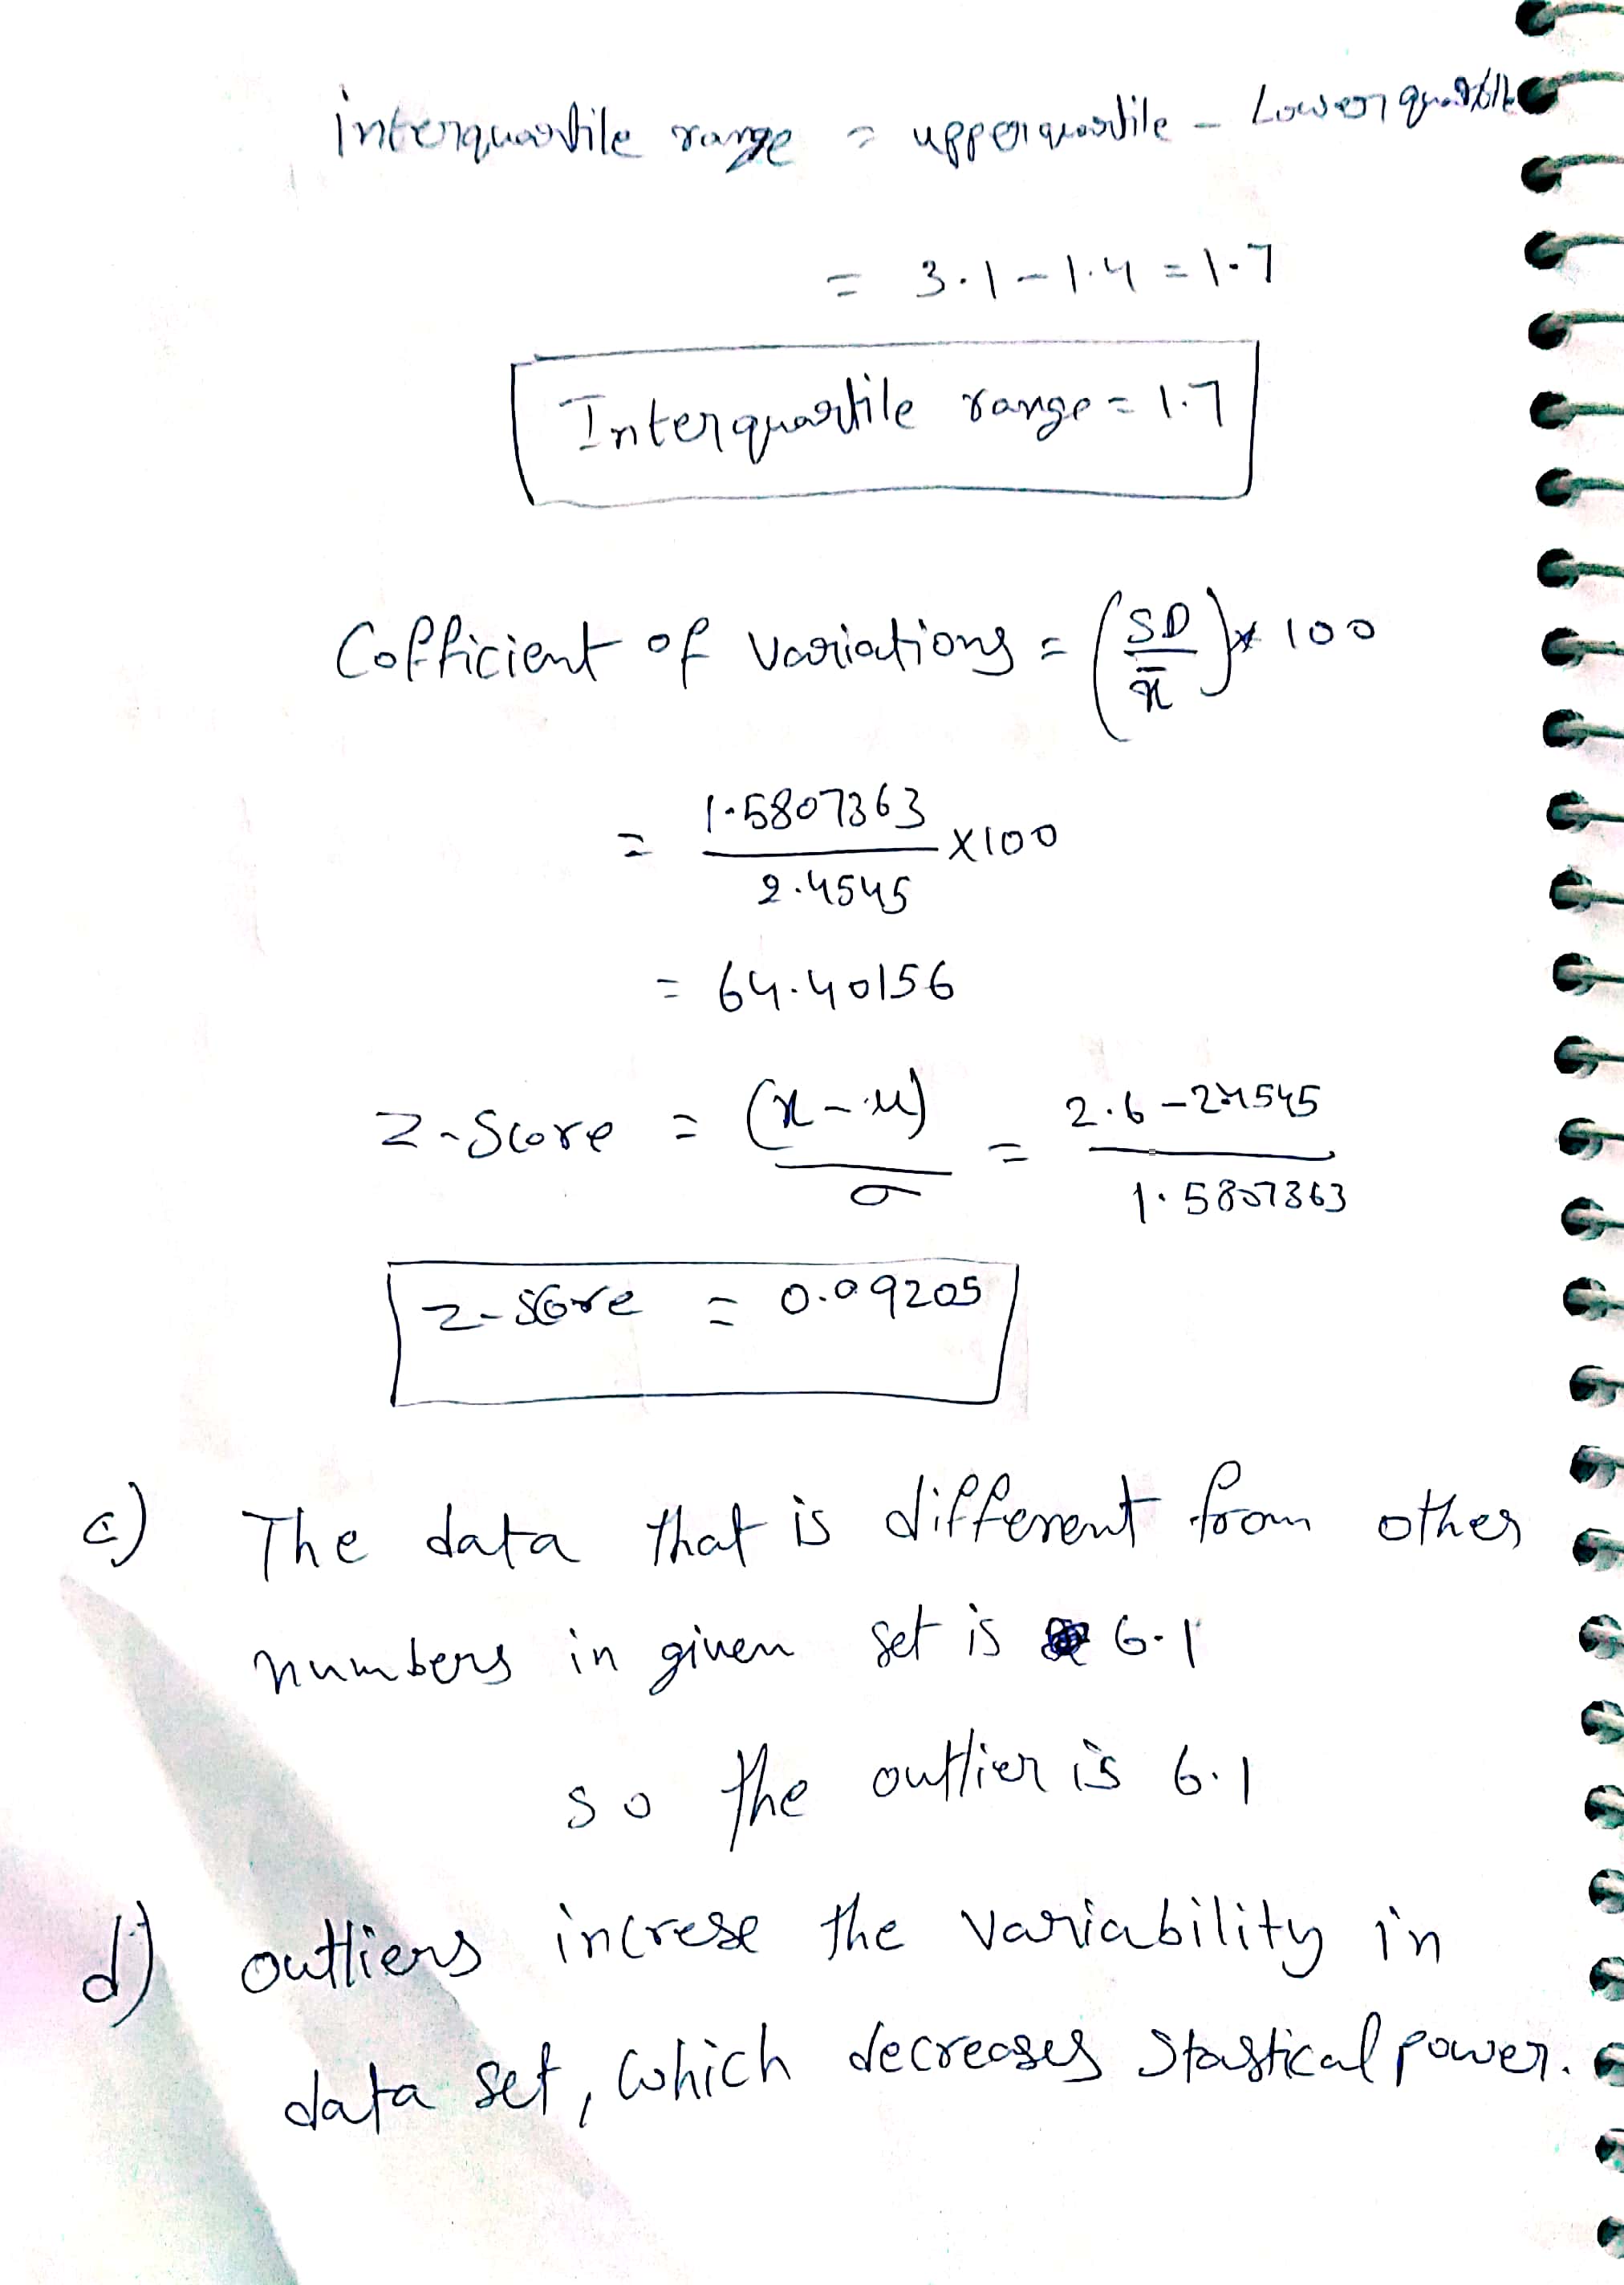 interquartile range = upperquartile - Lower quartile
= 3.1 - 1.4 = 1.7
Interquartile range = 1.7
Cofficient of variations = (SD / x̄) × 100
= 1.5807363 / 2.4545 × 100
= 64.40156
Z-Score = (x - μ) / σ = 2.6 - 2.4545 / 1.5807363
Z-score = 0.09205
c) The data that is different from other
numbers in given set is 6.1
so the outlier is 6.1
d) outliers increse the variability in
data set, which decreases Stastical power.